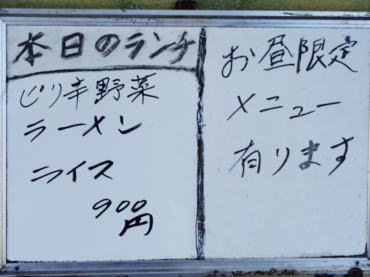 本日のランチ
ピリ辛野菜
ラーメン
ライス
900
円
お昼限定
メニュー
有ります